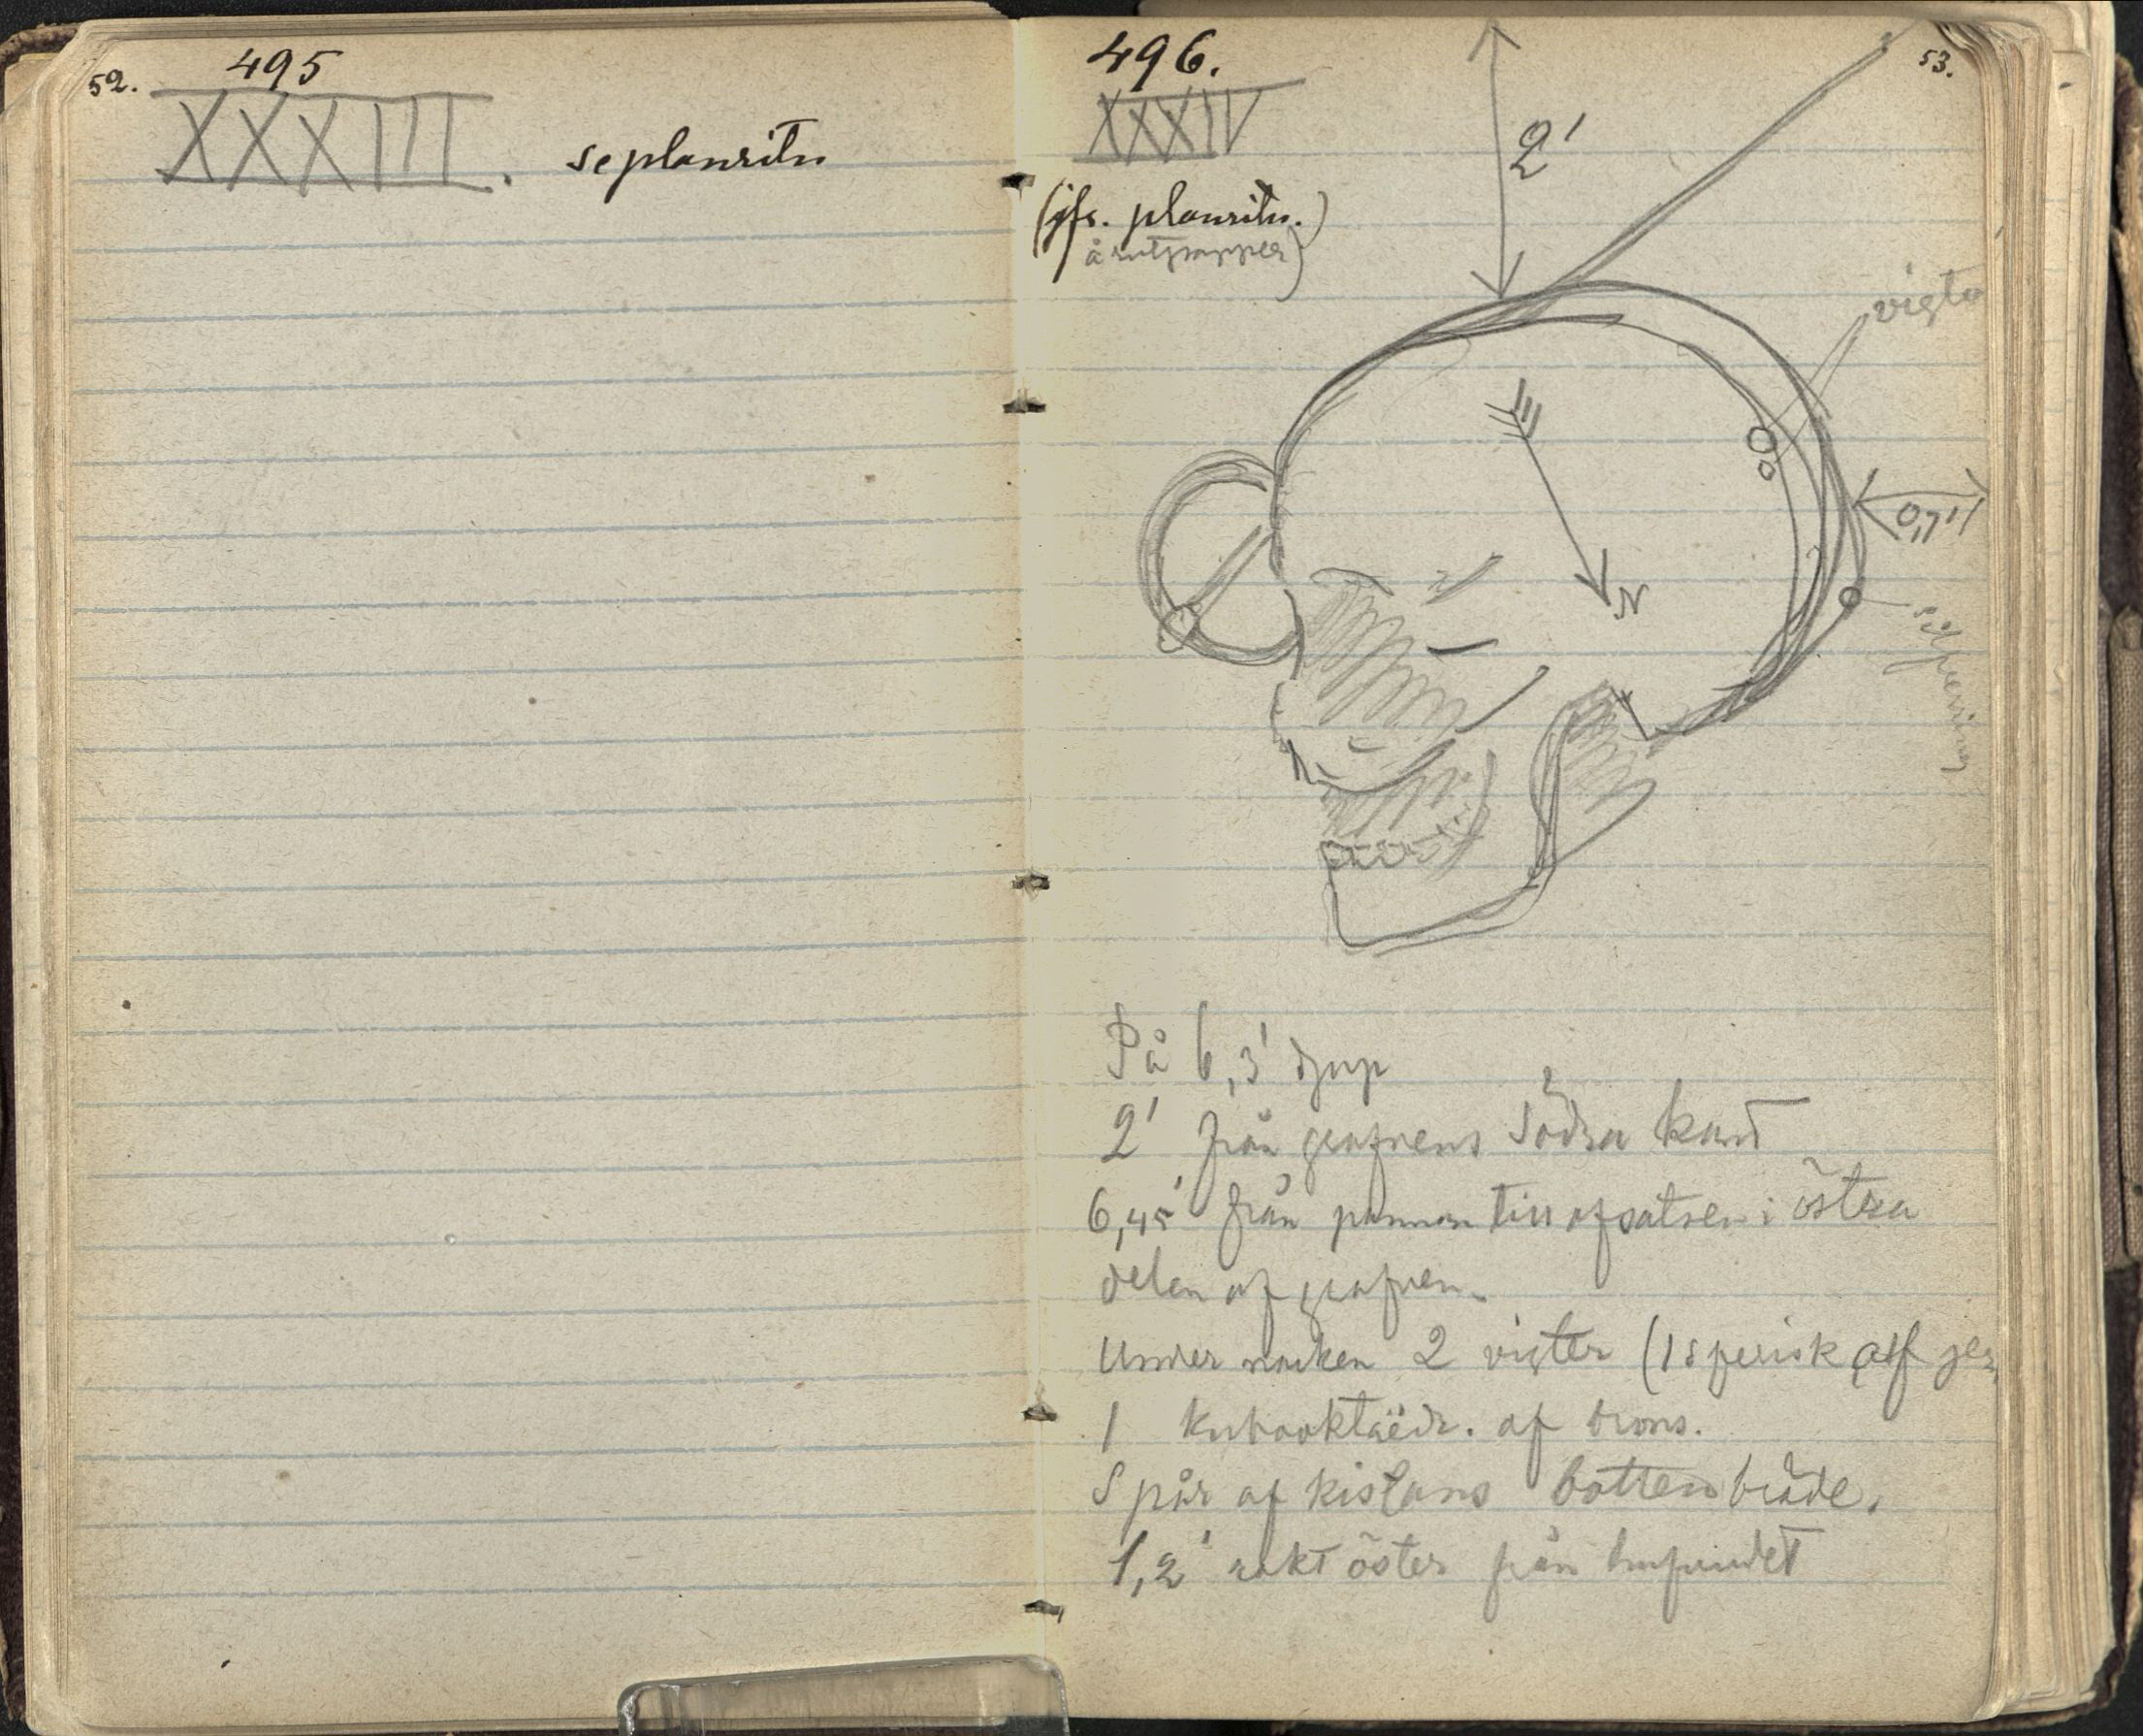 52.
495
XXXIII.
se planritn
496.
53.
XXXIV
(jfr. planritn.)
å rutpapper)
2'
vigter
0,7'
N
silfverring
På 6,3' djup
2' från grafvens södra kant
6,45' från pannan till afsatsen i östra
delen af grafven.
Under nacken 2 vigter (1 sferisk af jern
1 kubooktaëdr. af brons.
Spår af kistans bottenbräde.
1,2' rakt öster från hufvudet